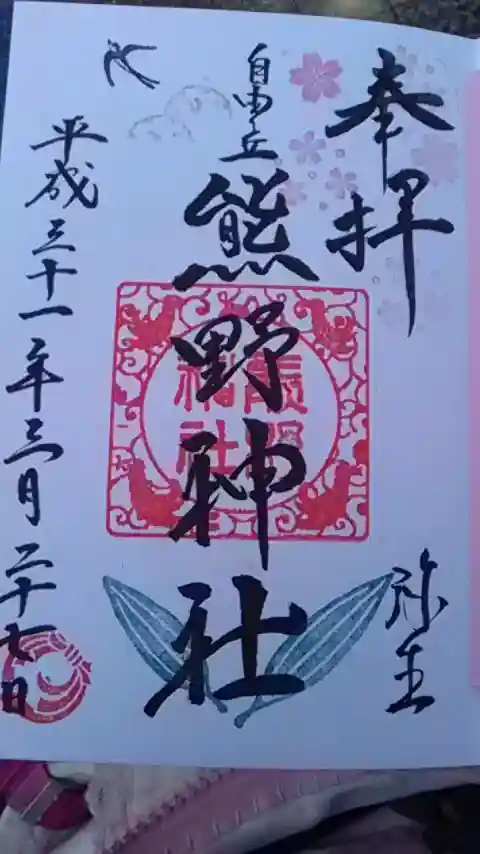 奉拝
弥生
自由丘
熊野神社
熊野
神社
平成三十一年三月二十七日